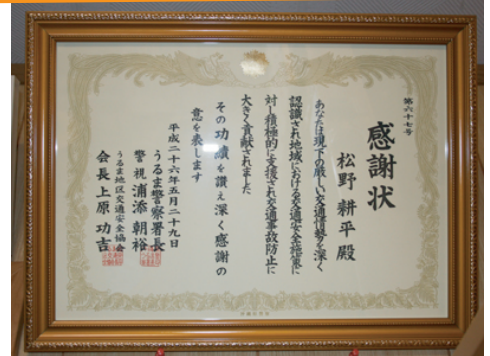 第六十七号
感謝状
松野耕平殿
あなたは現下の厳しい交通情勢を深く
認識され地域における交通安全施策に
対し積極的に支援され交通事故防止に
大きく貢献されました
その功績を讃え深く感謝の
意を表します
平成二十六年五月二十九日
うるま警察署長
警視浦添朝裕
うるま地区交通安全協会
会長上原功吉